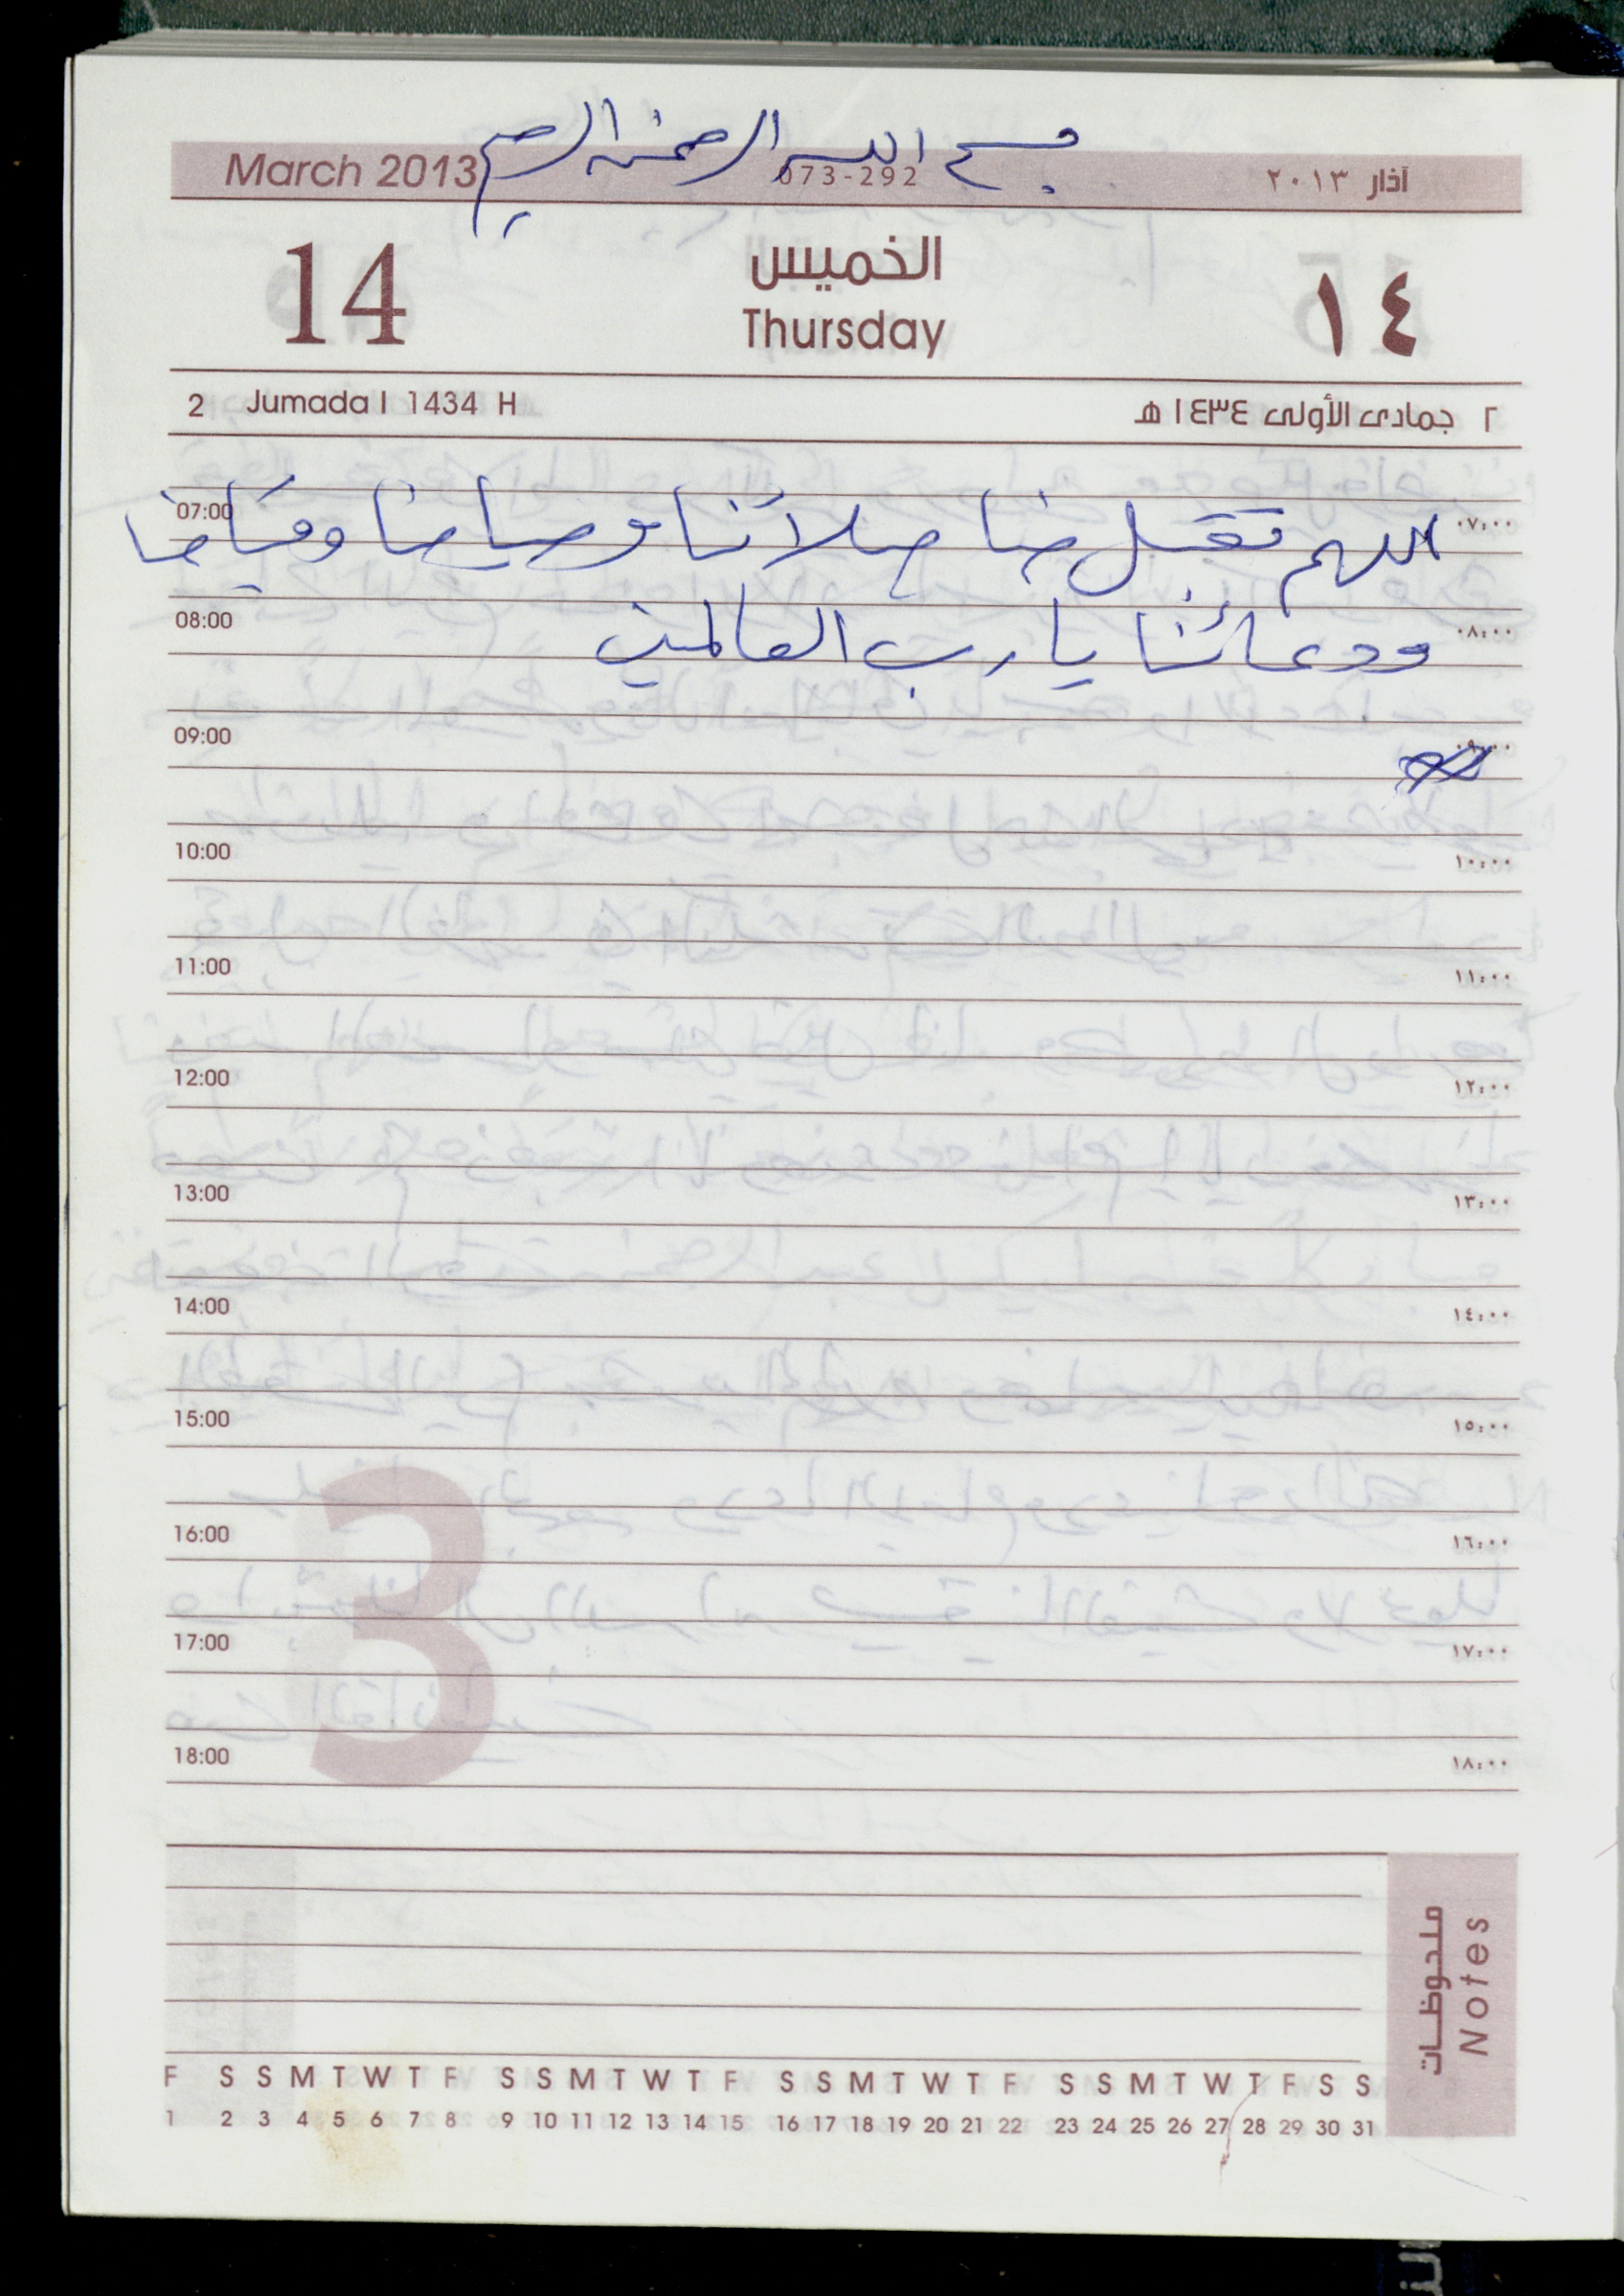 بسم الله الرحمن الرحيم
March 2013 073-292 آذار ٢٠١٣
14 الخميس ١٤
Thursday
2 Jumada I 1434 H ٢ جمادى الأولى ١٤٣٤ هـ
07:00 اللهم تقبل منا صلاتنا وصيامنا وقيامنا ٠٧:٠٠
08:00 ودعائنا يا رب العالمين ٠٨:٠٠
09:00 ٠٩:٠٠
10:00 ١٠:٠٠
11:00 ١١:٠٠
12:00 ١٢:٠٠
13:00 ١٣:٠٠
14:00 ١٤:٠٠
15:00 ١٥:٠٠
16:00 ١٦:٠٠
17:00 ١٧:٠٠
18:00 ١٨:٠٠
3
ملحوظات
Notes
F S S M T W T F S S M T W T F S S M T W T F S S M T W T F S S
1 2 3 4 5 6 7 8 9 10 11 12 13 14 15 16 17 18 19 20 21 22 23 24 25 26 27 28 29 30 31